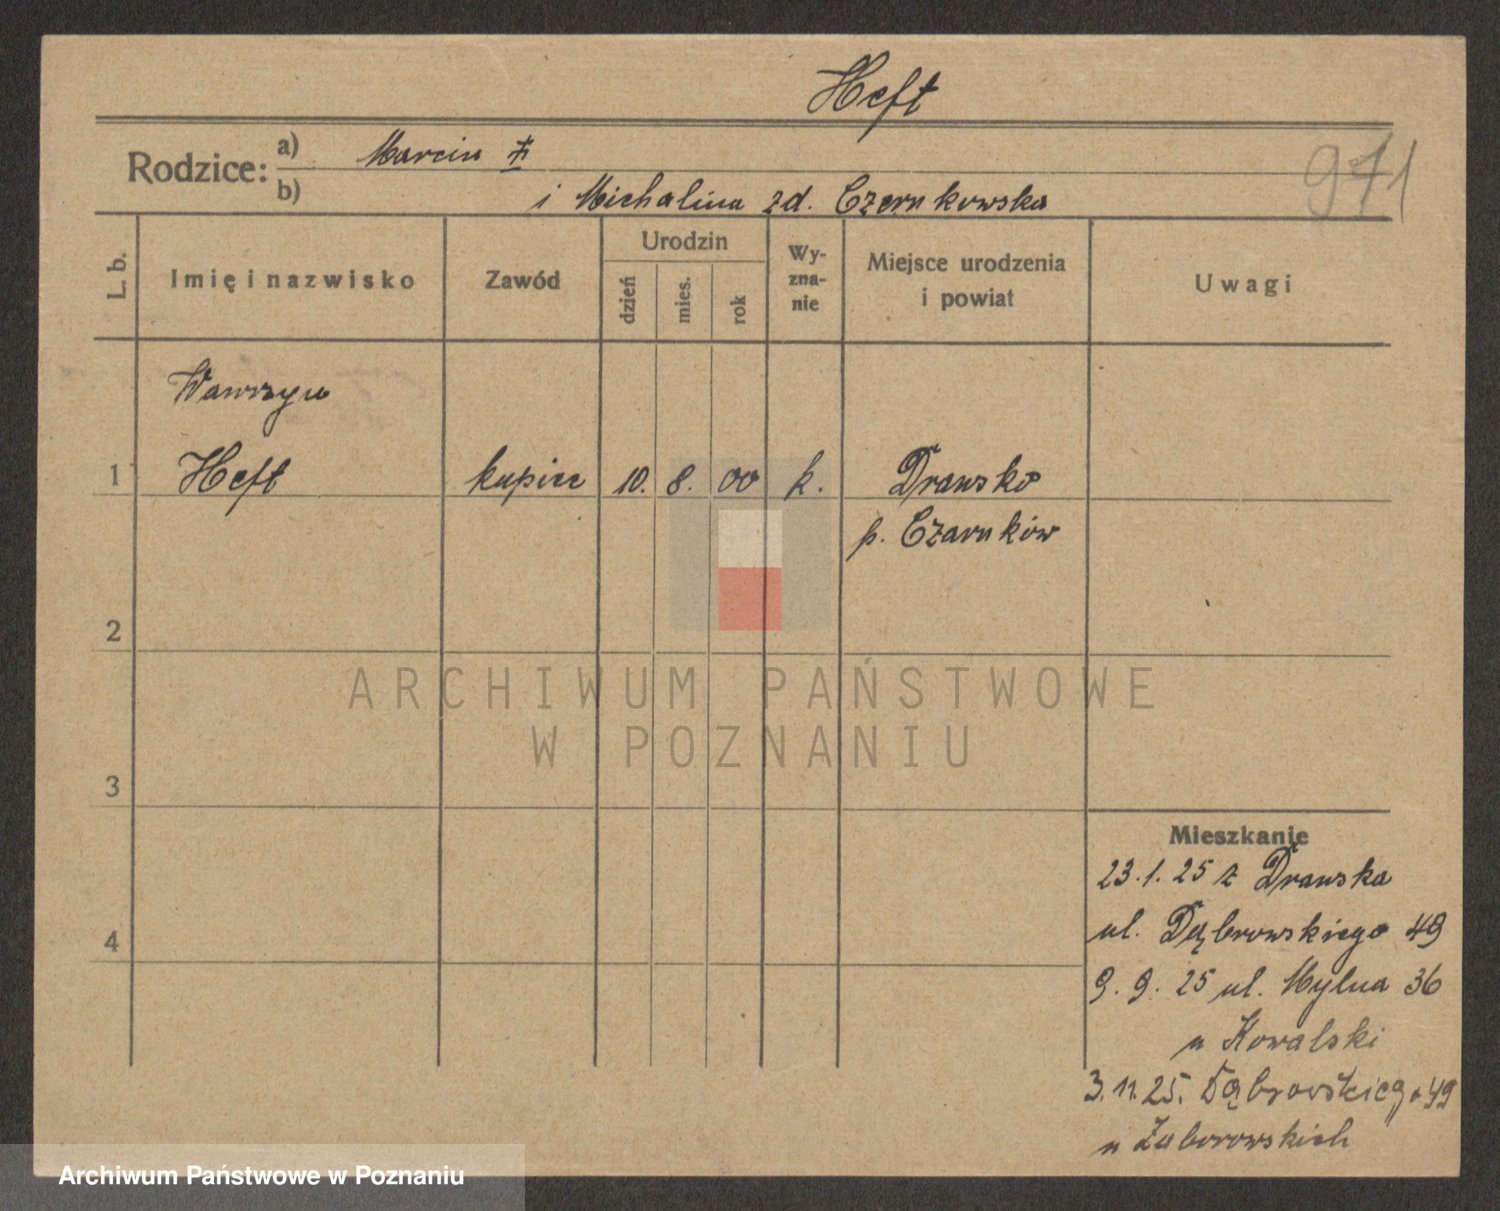 Heft
Rodzice:
a) Marcin
b) i Michalina zd. Czernkowska
971
L. b.
Imię i nazwisko
Zawód
Urodzin
dzień
mies.
rok
Wy-
zna-
nie
Miejsce urodzenia
i powiat
Uwagi
Wawrzyn
1 Heft kupiec 10. 8. 00 k. Drawsko
p. Czarnków
2
3
4
Mieszkanie
23.1.25 z Drawska
ul. Dąbrowskiego 49
9. 9. 25 ul. Mylna 36
u Kowalski
3.11.25. Dąbrowskiego 49
u Zaborowskich
ARCHIWUM PAŃSTWOWE
W POZNANIU
Archiwum Państwowe w Poznaniu